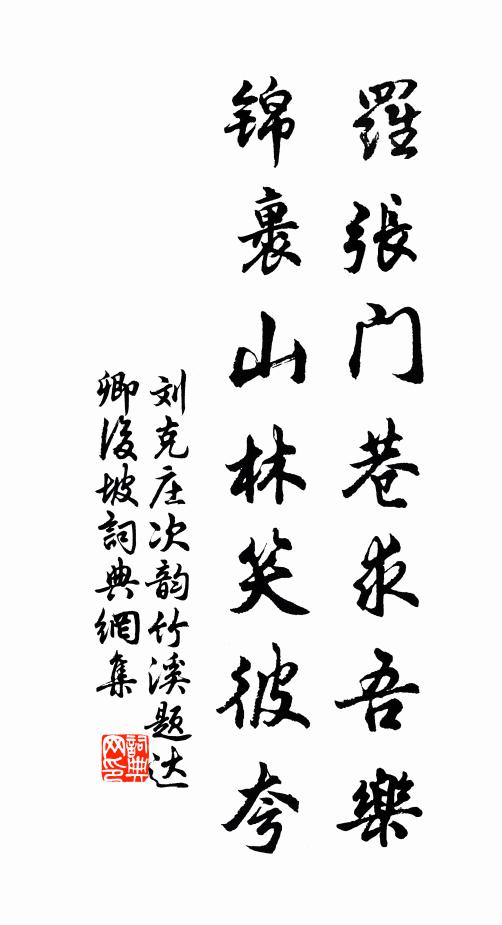 羅張门巷求吾樂
锦裹山林笑彼夸
刘克庄次韵竹溪题达
卿後坡詞典網集
詞典网印